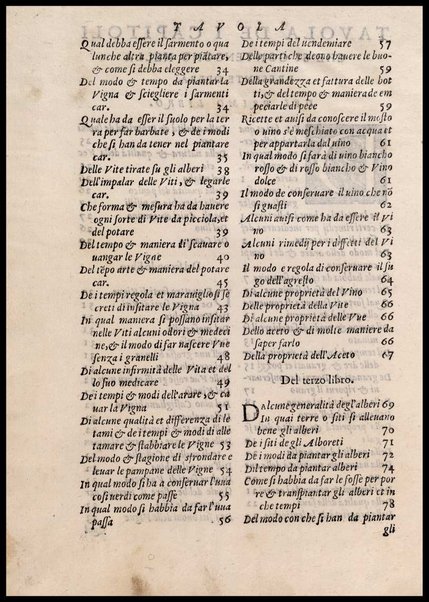 TAVOLA
Qual debba essere il sarmento o qua
lunche altra pianta per piãtare,
& come si debba eleggere 34
Del modo & tempo da piantar la
Vigna & sciegliere i sarmenti
car. 34
Quale ha da essere il suolo per la ter
ra per far barbate, & de i modi
che si han da tener nel piantare
car. 35
Delle Vite tirate su gli alberi 38
Dell'impalar delle Viti, & legarle
car. 39
Che forma & mesura ha da hauere
ogni sorte di Vite da picciola, et
del potare 39
Del tempo & maniera di scauare o
uangar le Vigne 40
Del tẽpo arte & maniera del potare
car. 45
De i tempi regola et marauigliosi se
creti di insitare le Vigna 43
In qual maniera si possono insitar
nelle Viti alcuni odori & medeci
ne, & il modo di far nascere Vue
senza i granelli 48
Di alcune infirmità delle Vita et del
lo suo medicare 49
De i tempi & modi dell'arare, & ca
uar la Vigna 51
Di alcune qualità et differenza di le
tami & de i tempi & modi di alle
tamare & stabbiare le Vigne 53
Del modo & stagione di sfrondare e
leuar le pampane delle Vigne 54
In qual modo si ha à conseruar l'uua
cosi uerdi come passe 55
In qual modo si habbia da far l'uua
passa 56
De i tempi del uendemiare 57
Delle parti che deono hauere le buo-
ne Cantine 59
Della grandezza et fattura delle bot
ti, & del tempo & maniera de em
peciarle di pece 59
Ricette et auisi da conoscere il mosto
o uino s'è meschiato con acqua et
per appartarla dal uino 61
In qual modo si farà di uino bianco
rosso & di rosso bianche & Vino
dolce 61
Il modo de conseruare il uino che nõ
si guasti 62
Alcuni auisi come ha da essere il Vi
no 63
Alcuni rimedij per i diffetti del Vi
no 63
Il modo e regola di conseruare il su
go dell'agresto 64
Di alcune proprietà del Vino 65
Delle proprietà della Vite 66
Di alcune proprietà delle Vue 66
Dello aceto & di molte maniere da
saper farlo 66
Della proprietà dell'Aceto 67
Del terzo libro.
Da alcune generalità degl'alberi 69
In quai terre o siti si alleuano
bene gli alberi 70
De i siti de gli Alboreti 71
De i modi da piantar gli alberi 72
Dil tempo da piantar alberi 74
Come si habbia da far le fosse per por
re & transpiantar gli alberi et in
che tempi 78
Del modo con che si han da piantar
gli